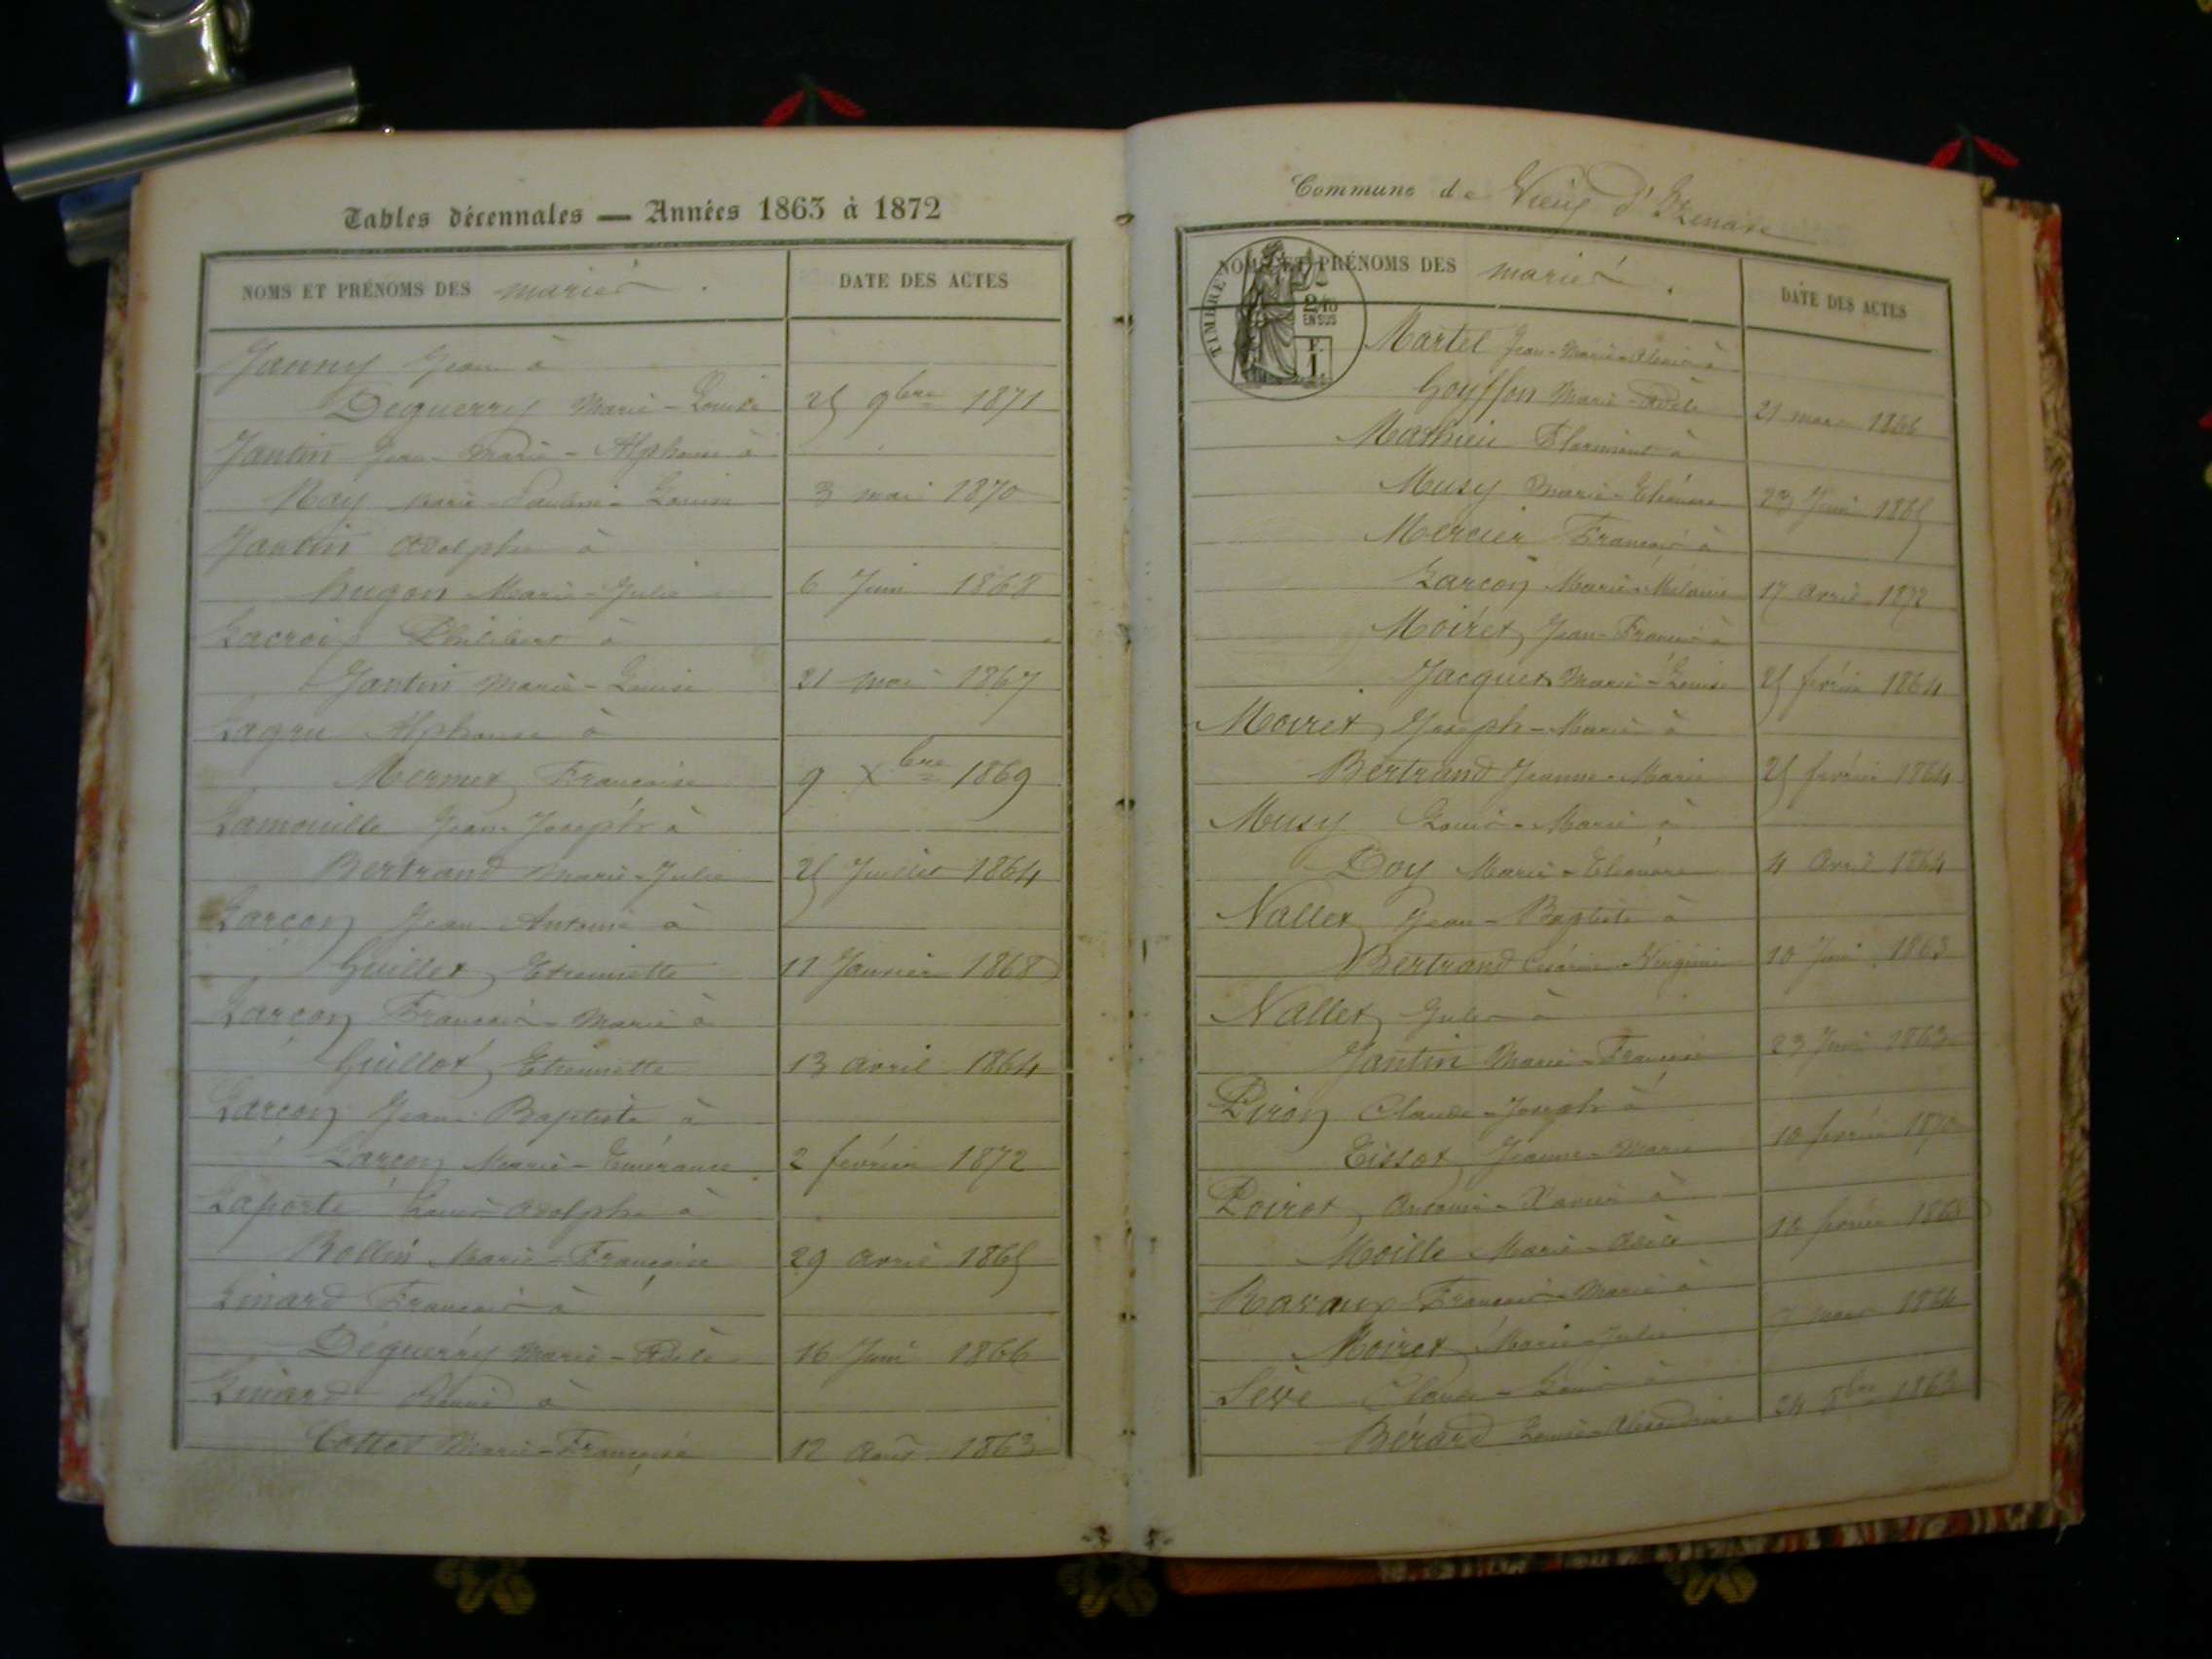 Tables décennales — Années 1863 à 1872
NOMS ET PRÉNOMS DES mariés. DATE DES ACTES
Janny Jean à
Deguerry Marie-Louise 25 9bre 1871
Jantin Jean-Marie-Alphonse à
Nay Marie- Louise 3 mai 1870
Jantin Adolphe à
hugon Marie-Julie 6 Juin 1868
Lacroix Philibert à
Jantin Marie-Louise 21 mai 1867
Lagru Alphonse à
Mermet Françoise 9 Xbre 1869
Lamouille Jean Joseph à
Bertrand Marie-Julie 25 Juillet 1864
Larçon Jean-Antoine à
Guillot Etiennette 11 Janvier 1868
Larçon François-Marie à
Guillot Etiennette 13 avril 1864
Larçon Jean-Baptiste à
Larçon Marie-Emérance 2 février 1872
Laporte Louis Adolphe à
Rollin Marie-Françoise 29 avril 1865
Linard François à
Déguerry Marie-Adèle 16 Juin 1866
Linard à
Cottet Marie-Françoise 12 Août 1863
Commune de Vieux d'Izenave
TIMBRE
2/10
EN SUS
F.
1.
NOMS ET PRÉNOMS DES mariés. DATE DES ACTES
Martel Jean-Marie-Alexis à
Goyffon Marie-Adèle 21 mars 1866
Mathieu Florimond à
Musy Marie-Eléonore 23 Juin 1865
Mercier François à
Larçon Marie-Mélanie 17 avril 1872
Moiret Jean-François à
Jacquet Marie-Louise 25 février 1864
Moiret Joseph-Marie à
Bertrand Jeanne-Marie 25 février 1864
Musy Louis-Marie à
Doy Marie-Eléonore 4 Avril 1864
Nallet Jean-Baptiste à
Bertrand Césarine-Virginie 10 Juin 1863
Nallet Jules à
Jantin Marie-Françoise 23 Juin 1863
Piron Claude-Joseph à
Tissot Jeanne-Marie 10 février 1870
Poirot Antoine-Xavier à
Moille Marie-Adèle 10 février 1868
Ravaux François-Marie à
Moiret Marie-Julie 7 mars 1864
Sève Claude-Louis à
Bérard Louise-Alexandrine 24 8bre 1863